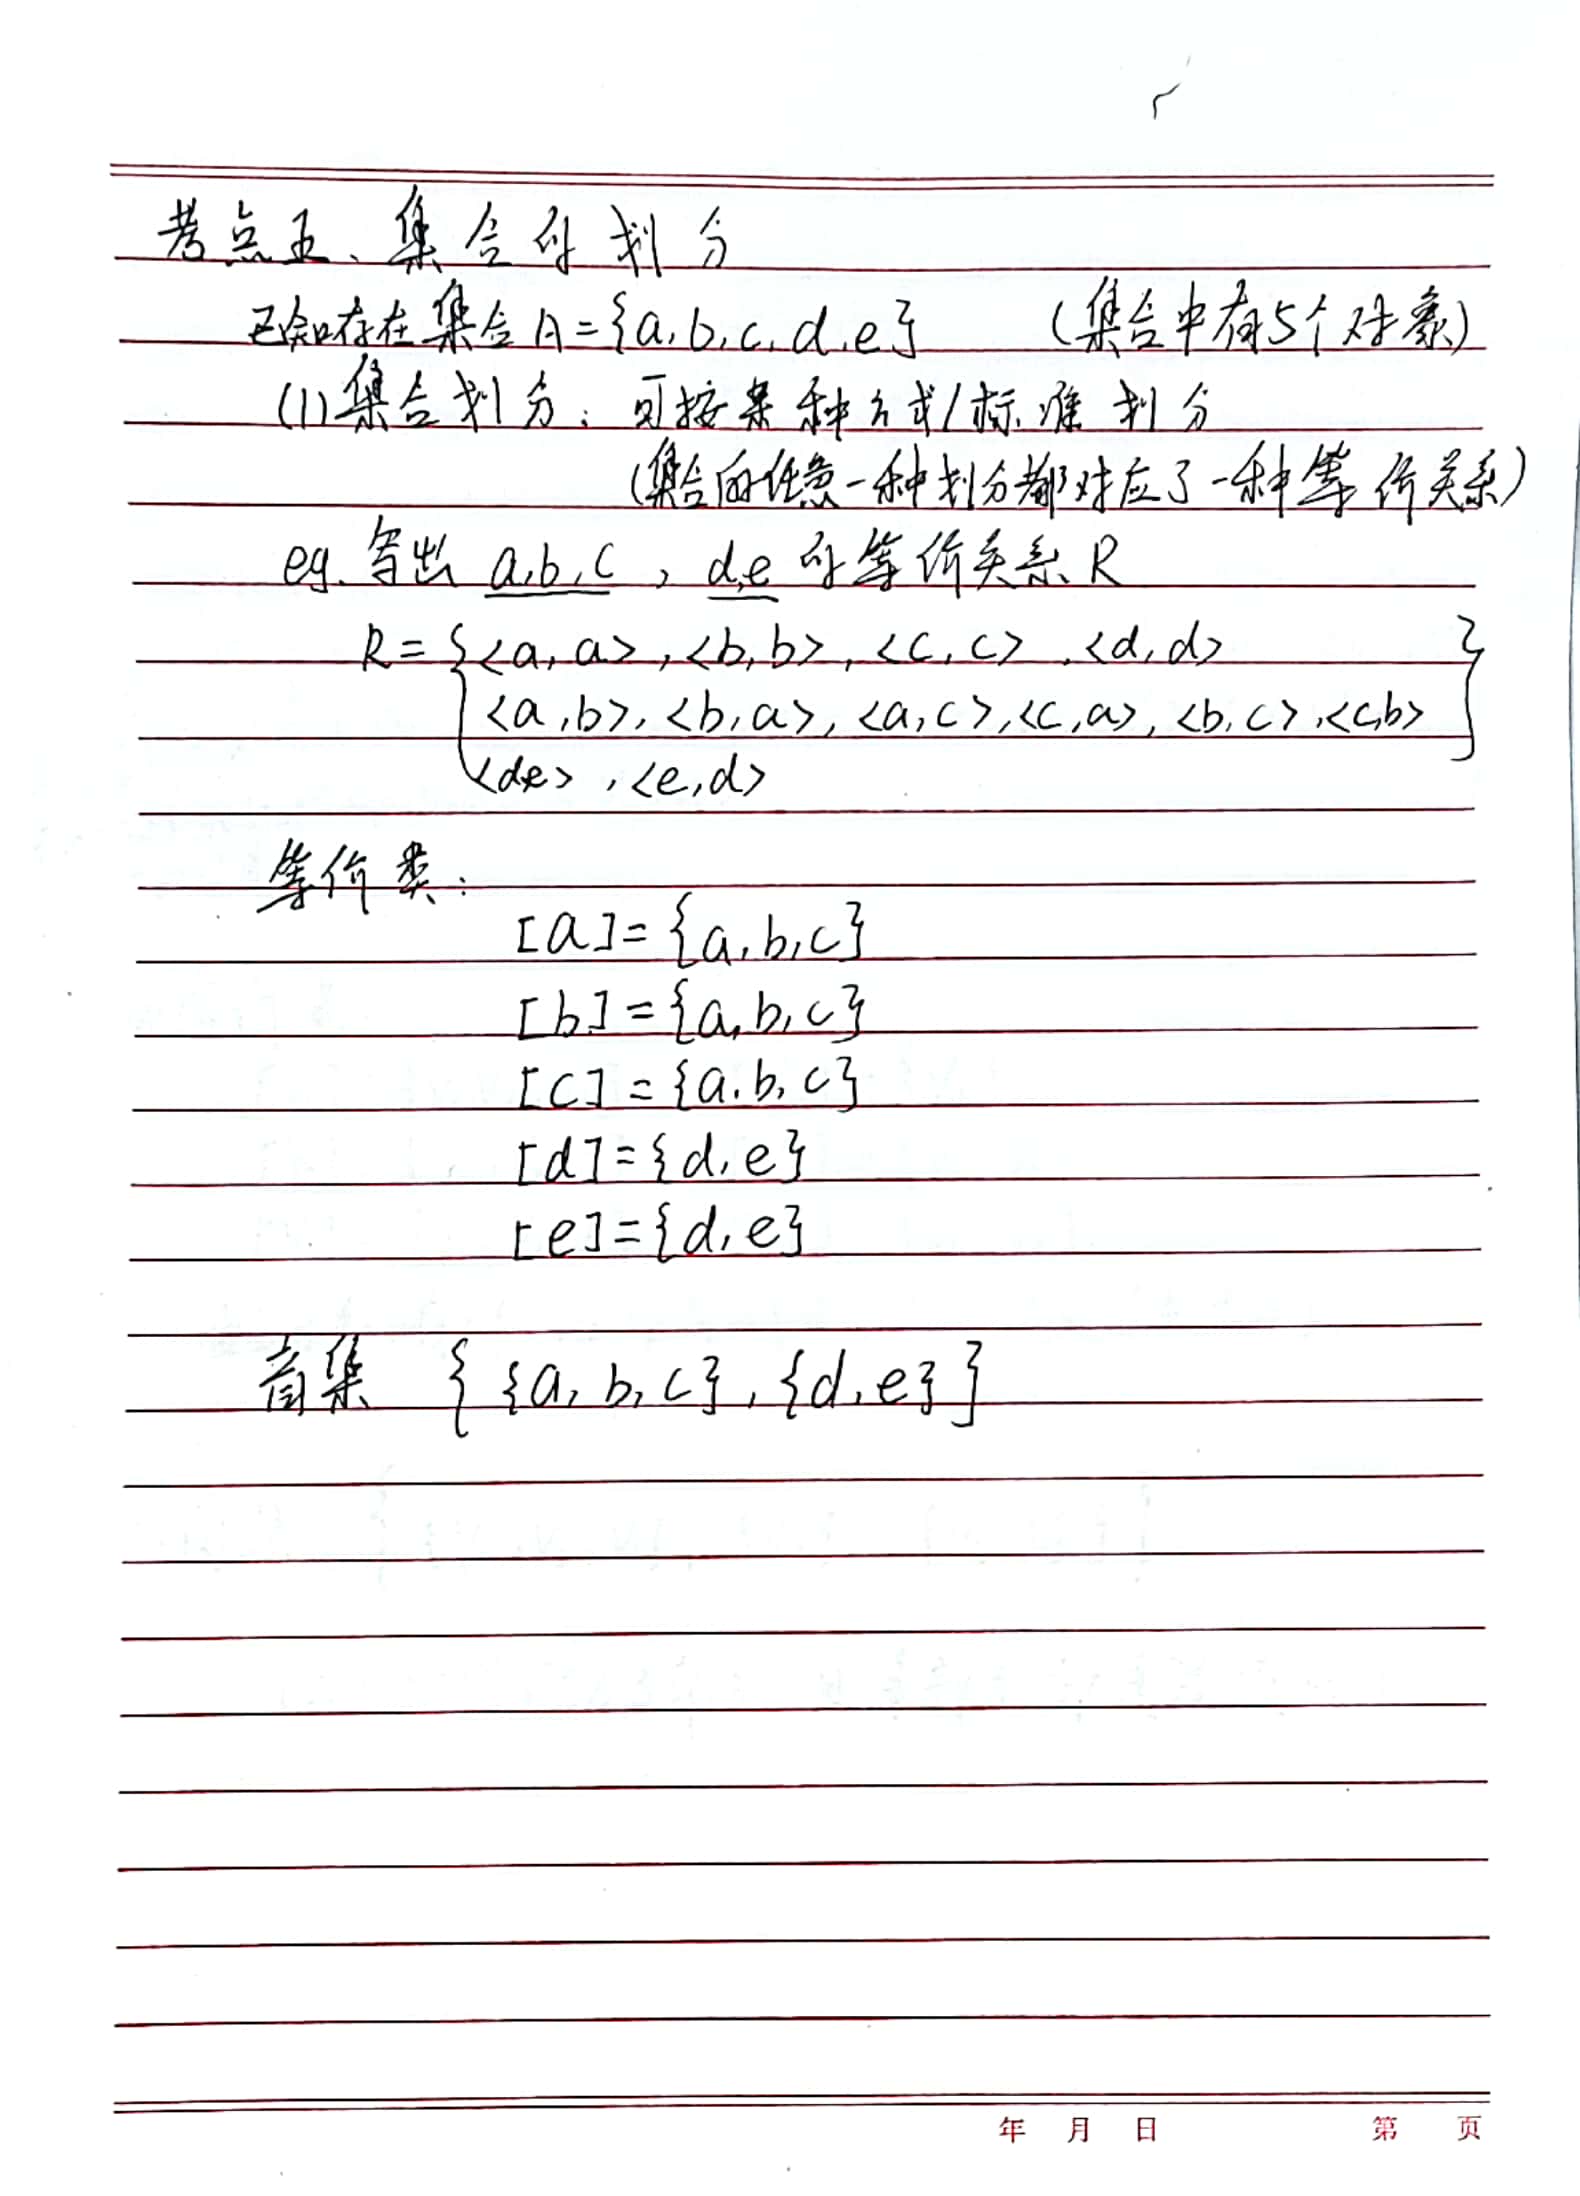 考点五、集合的划分
已知存在集合A={a,b,c,d,e} (集合中有5个对象)
(1)集合划分:可按某种方式/标准划分
(集合的任意一种划分都对应了一种等价关系)
eg.写出 a,b,c , d,e 的等价关系R
R={<a,a>,<b,b>,<c,c>,<d,d>
<a,b>,<b,a>,<a,c>,<c,a>,<b,c>,<c,b>}
<d,e>,<e,d>
等价类:
[a]={a,b,c}
[b]={a,b,c}
[c]={a,b,c}
[d]={d,e}
[e]={d,e}
商集 {{a,b,c},{d,e}}
年 月 日 第 页